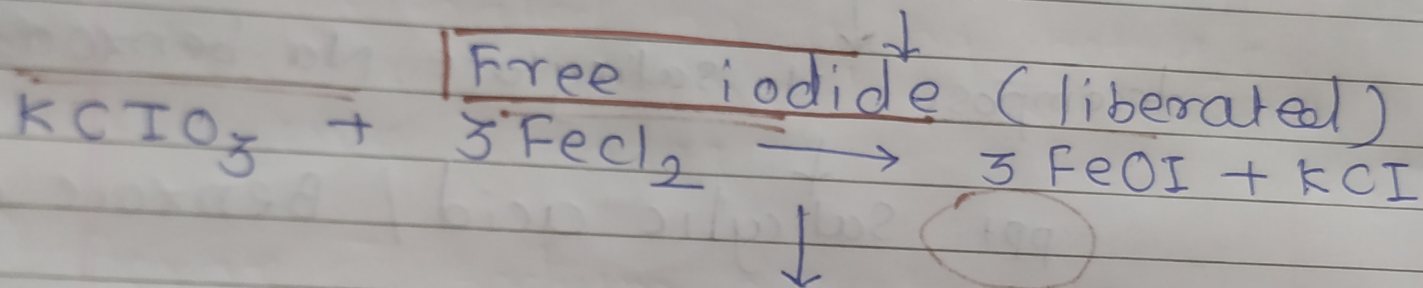 ↓
Free iodide (liberated)
KCIO₃ + 3FeCl₂ → 3 FeOI + KCI
↓